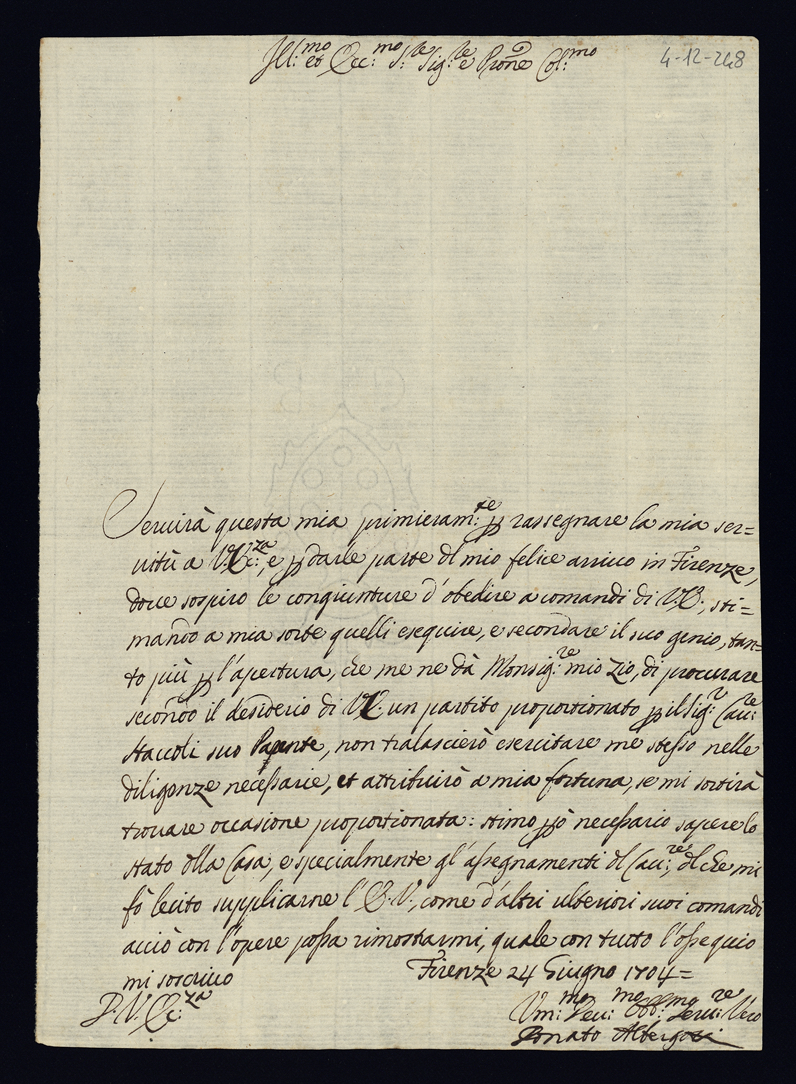 Ill:mo et Ecc:mo S:re Sig:re e Prone Col:mo
4-12-248
Seruirà questa mia primieram:te p rassegnare la mia ser=
uitù a V.Ec:za, e p darle parte dl mio felice arriuo in Firenze,
doue sospiro le congiunture d'obedire a comandi di V.E., sti=
mando a mia sorte quelli eseguire, e secondare il suo genio, tan=
to più p l'apertura, che me ne dà Monsig:re mio Zio, di procurare
secondo il desiderio di V.E. un partito proportionato p il Sig:r Cau:re
Staccoli suo Parente, non tralascierò esercitare me stesso nelle
diligenze necessarie, et attribuirò a mia fortuna, se mi sortirà
trouare occasione proportionata: stimo pò necessario sapere lo
stato dlla Casa, e specialmente gl'assegnamenti dl Cau:re, dl che mi
fò lecito supplicarne l'E.V., come d'altri ulteriori suoi comandi
acciò con l'opere possa rimostrarmi, quale con tutto l'ossequio
mi soscriuo
Firenze 24 Giugno 1704=
D.V.Ec:za
Um:mo Deu:mo Obb:mo Seru:re Vero
Donato Albergoti